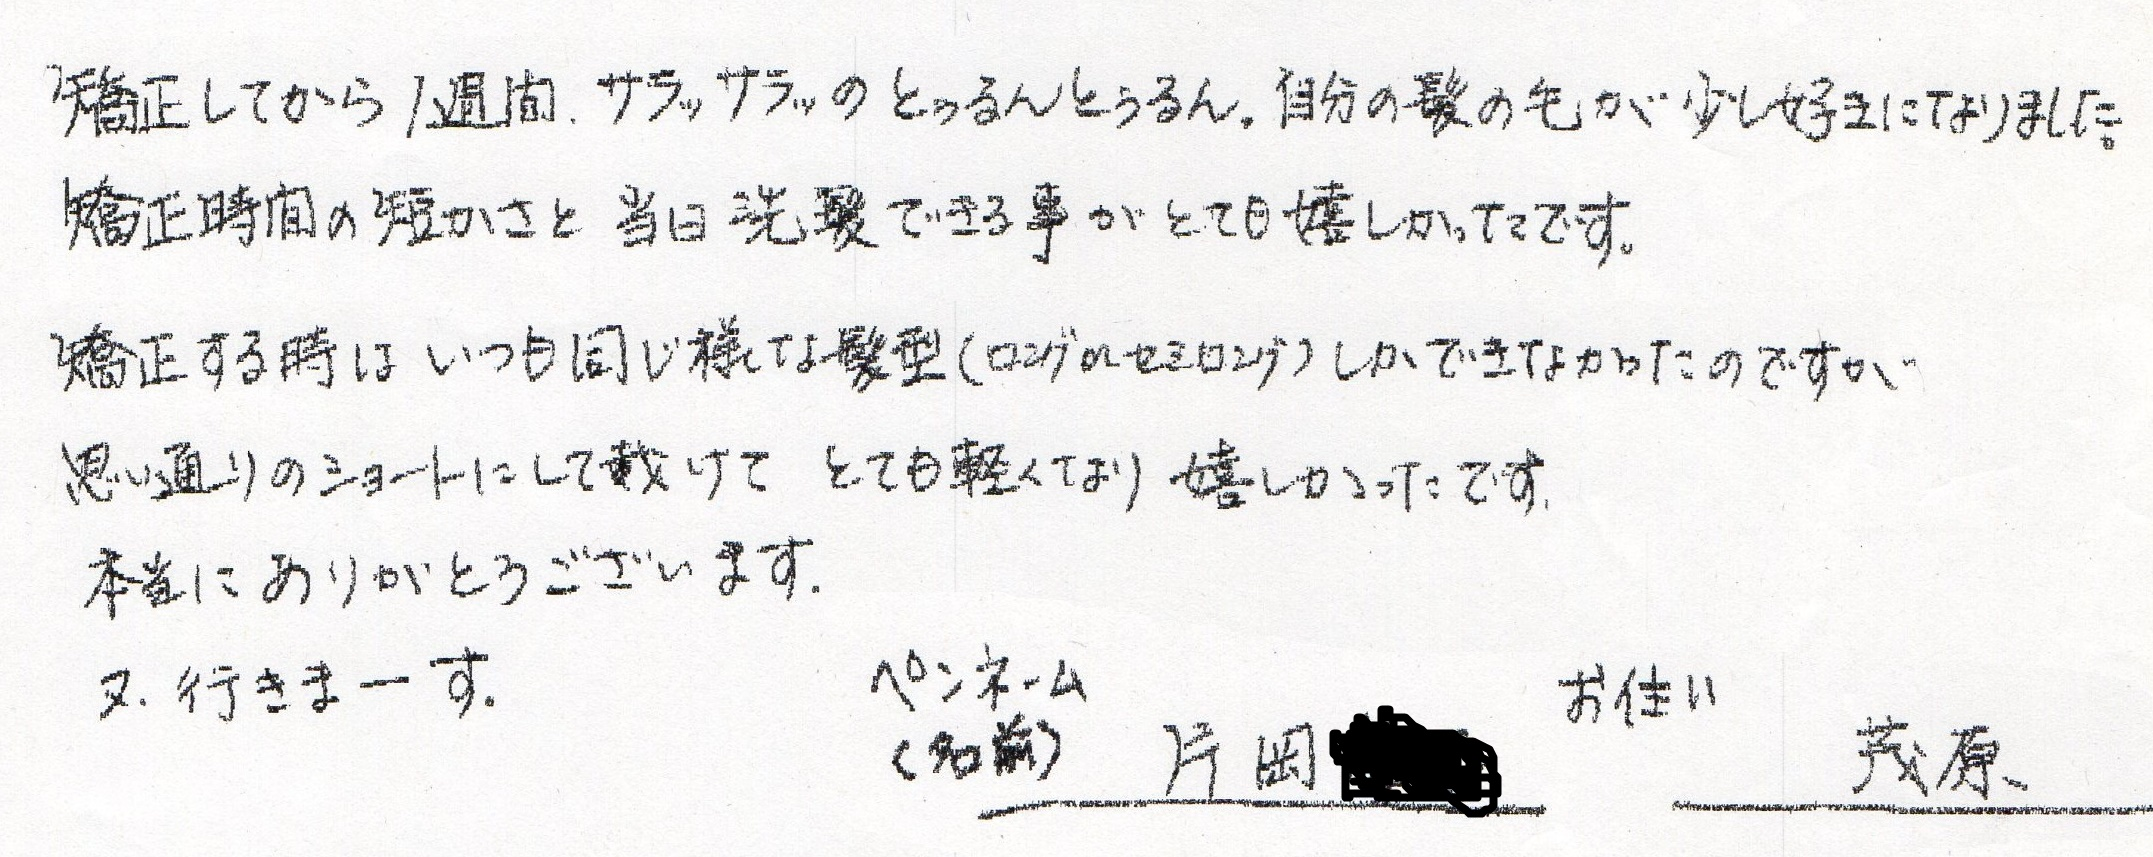 矯正してから1週間、サラッサラッのとぅるんとぅるん。自分の髪の毛が少し好きになりました。
矯正時間の短かさと当日洗髪できる事がとても嬉しかったです。
矯正する時はいつも同じ様な髪型(ロングorセミロング)しかできなかったのですが
思い通りのショートにして戴けて とても軽くなり 嬉しかったです。
本当にありがとうございます。
又、行きまーす。
ペンネーム
(名前) 片岡 お住い 茂原